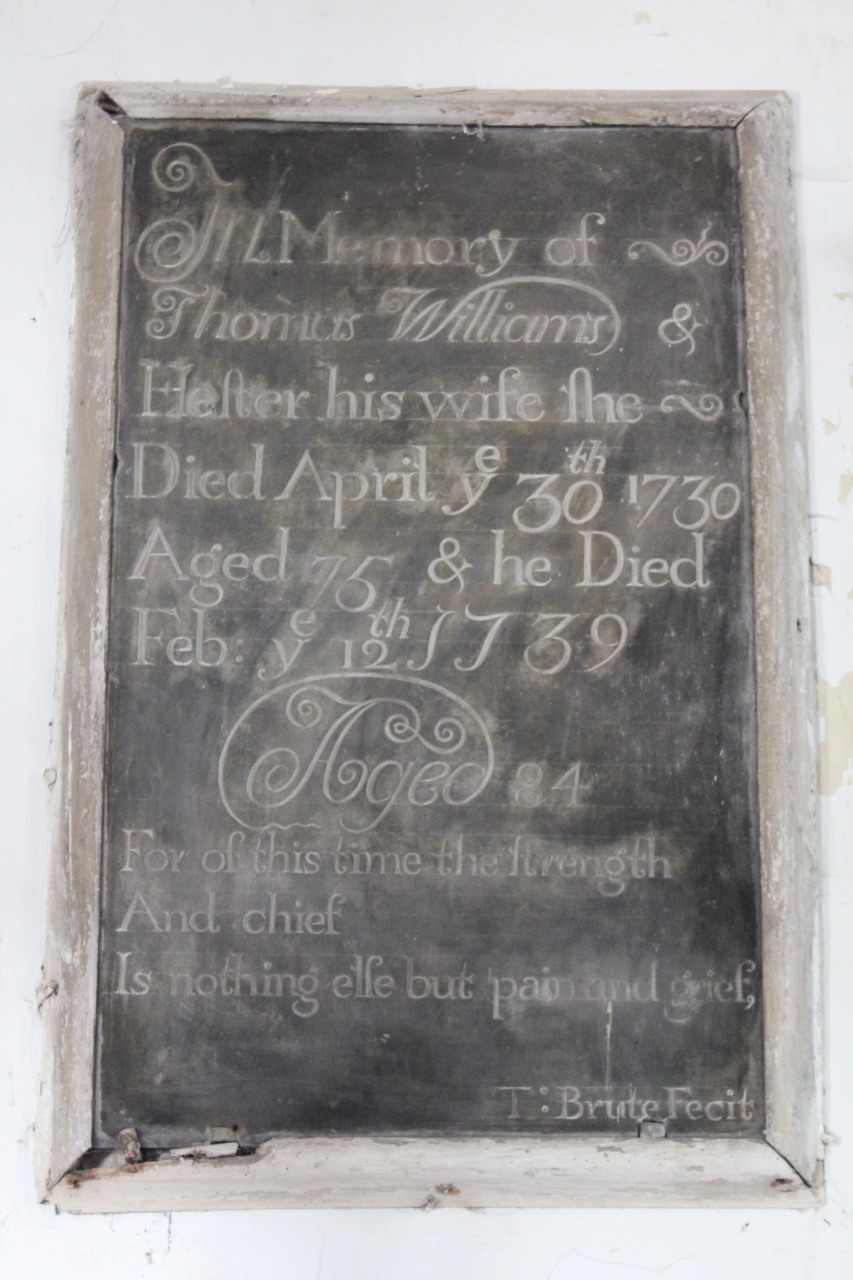 In Memory of
Thomas Williams &
Heſter his wife ſhe
Died April yᵉ 30ᵗʰ 1730
Aged 75 & he Died
Feb: yᵉ 12ᵗʰ 1739
Aged 84
For of this time the ſtrength
And chief
Is nothing elſe but pain and grief,
T: Brute Fecit